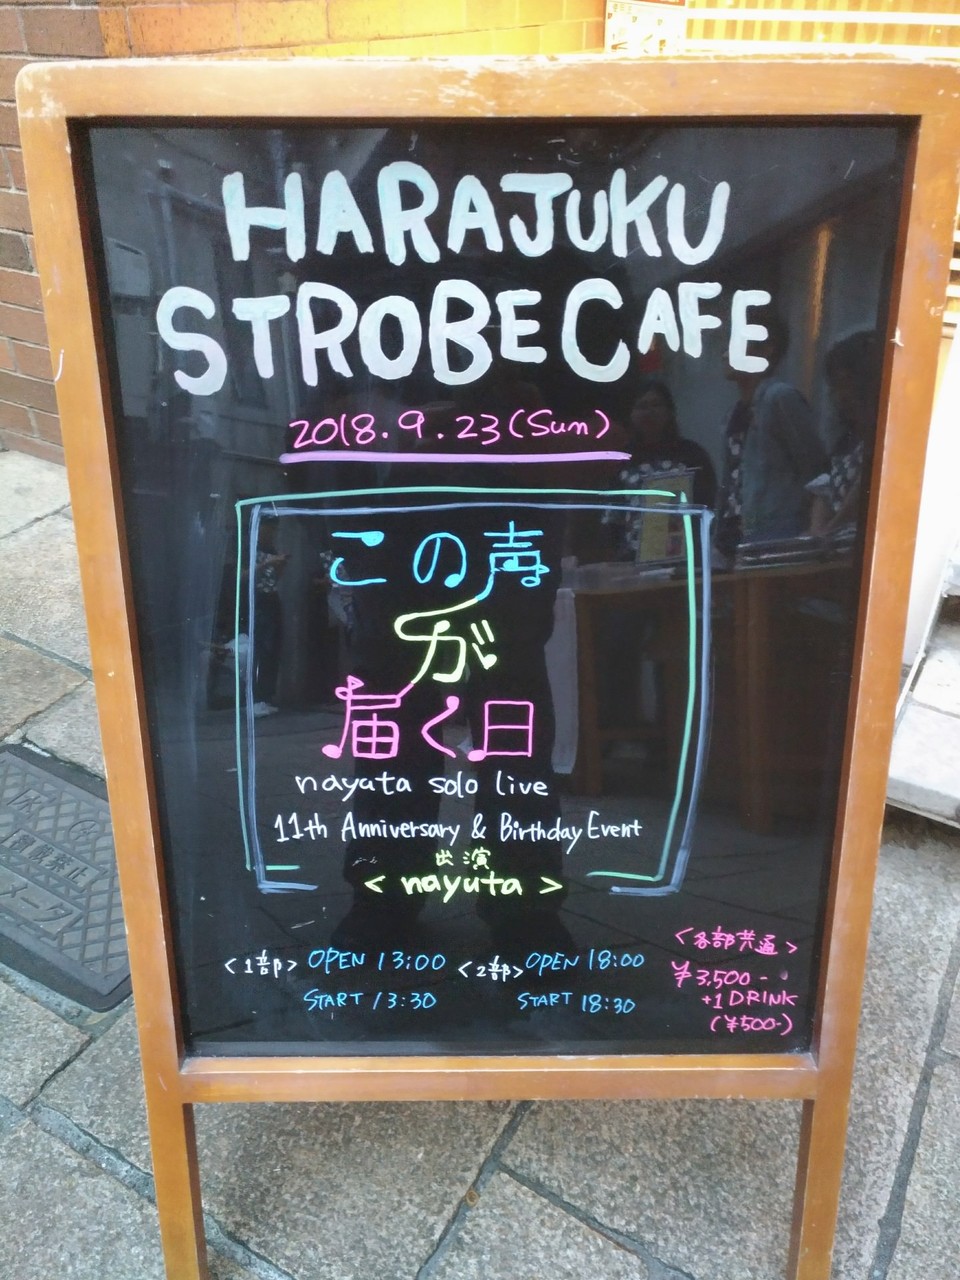 HARAJUKU
STROBE CAFE
2018.9.23(Sun)
この声
が
届く日
nayuta solo live
11th Anniversary & Birthday Event
出演
< nayuta >
<1部> OPEN 13:00
START 13:30
<2部> OPEN 18:00
START 18:30
<各部共通>
¥3,500-
+1 DRINK
(¥500-)